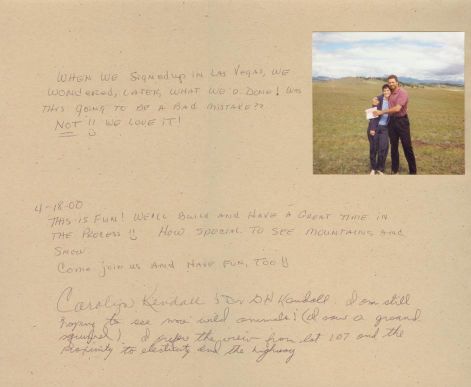 WHEN WE SIGNED UP IN LAS VEGAS, WE
WONDERED, LATER, WHAT WE'D DONE! WAS
THIS GOING TO BE A BAD MISTAKE??
NOT!! WE LOVE IT!
4-18-00
THIS IS FUN! WE'LL BUILD AND HAVE A GREAT TIME IN
THE PROCESS!! HOW SPECIAL TO SEE MOUNTAINS AND
SNOW.
COME JOIN US AND HAVE FUN, TOO!!
Carolyn Kendall & Dr DH Kendall. I am still
hoping to see more wild animals! (I saw a ground
squirrel). I prefer the view from lot 107 and the
proximity to electricity and the highway